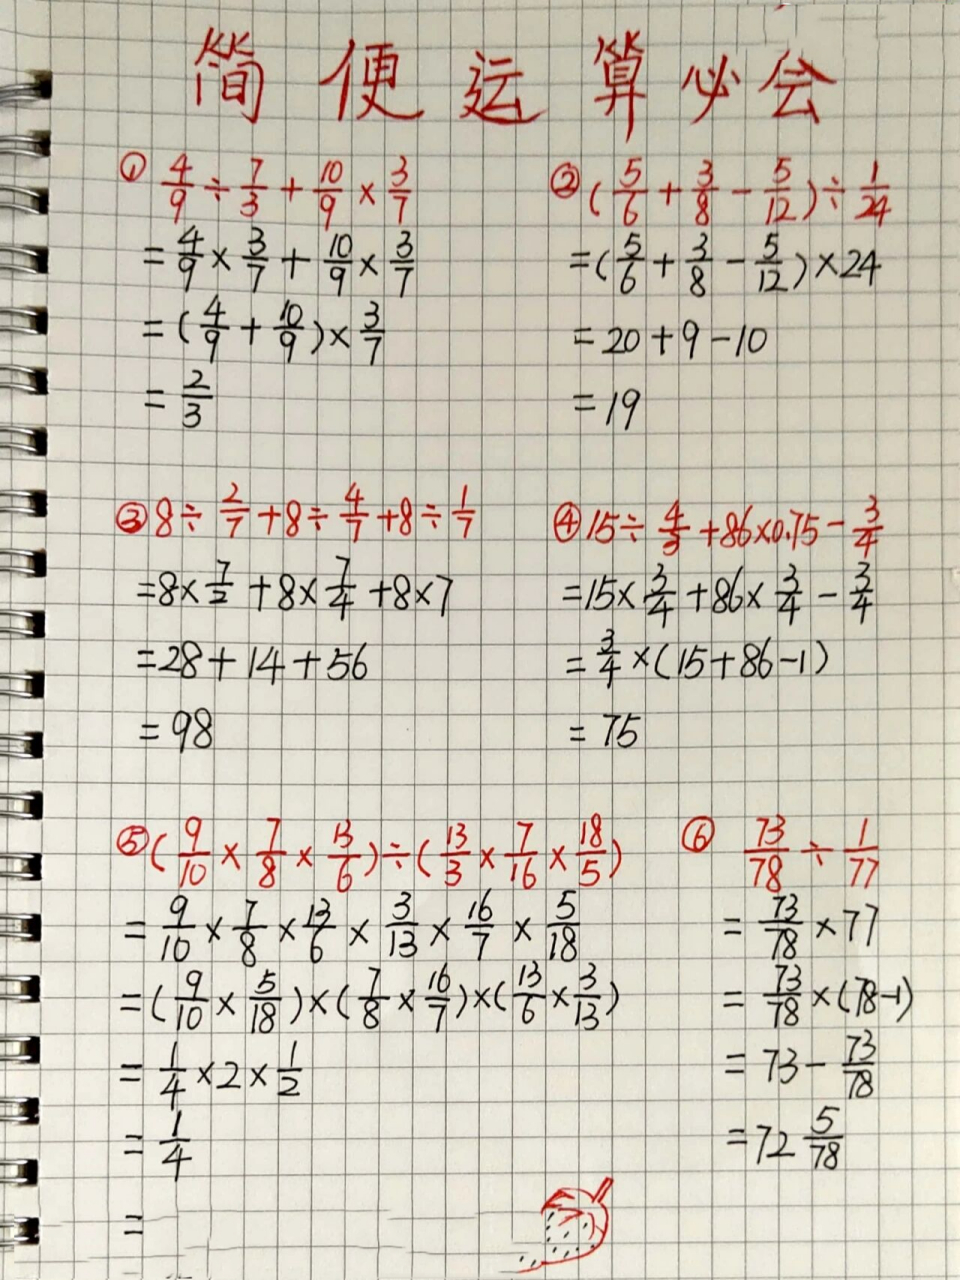 简便运算必会
① 4/9 ÷ 7/3 + 10/9 × 3/7
= 4/9 × 3/7 + 10/9 × 3/7
= (4/9 + 10/9) × 3/7
= 2/3
② (5/6 + 3/8 - 5/12) ÷ 1/24
= (5/6 + 3/8 - 5/12) × 24
= 20 + 9 - 10
= 19
③ 8 ÷ 2/7 + 8 ÷ 4/7 + 8 ÷ 1/7
= 8 × 7/2 + 8 × 7/4 + 8 × 7
= 28 + 14 + 56
= 98
④ 15 ÷ 4/3 + 86 × 0.75 - 3/4
= 15 × 3/4 + 86 × 3/4 - 3/4
= 3/4 × (15 + 86 - 1)
= 75
⑤ (9/10 × 7/8 × 13/6) ÷ (13/3 × 7/16 × 18/5)
= 9/10 × 7/8 × 13/6 × 3/13 × 16/7 × 5/18
= (9/10 × 5/18) × (7/8 × 16/7) × (13/6 × 3/13)
= 1/4 × 2 × 1/2
= 1/4
=
⑥ 73/78 ÷ 1/77
= 73/78 × 77
= 73/78 × (78-1)
= 73 - 73/78
= 72 5/78